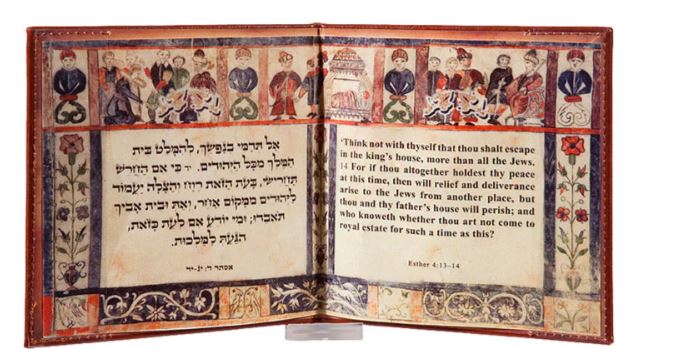 אַל תְּדַמִּי בְנַפְשֵׁךְ, לְהִמָּלֵט בֵּית
הַמֶּלֶךְ מִכָּל הַיְּהוּדִים. יד כִּי אִם הַחֲרֵשׁ
תַּחֲרִישִׁי, בָּעֵת הַזֹּאת רֶוַח וְהַצָּלָה יַעֲמוֹד
לַיְּהוּדִים מִמָּקוֹם אַחֵר, וְאַתְּ וּבֵית אָבִיךְ
תֹּאבֵדוּ; וּמִי יוֹדֵעַ אִם לְעֵת כָּזֹאת,
הִגַּעַתְּ לַמַּלְכוּת.
אסתר ד: יג-יד
'Think not with thyself that thou shalt escape
in the king's house, more than all the Jews.
14 For if thou altogether holdest thy peace
at this time, then will relief and deliverance
arise to the Jews from another place, but
thou and thy father's house will perish; and
who knoweth whether thou art not come to
royal estate for such a time as this?
Esther 4:13-14